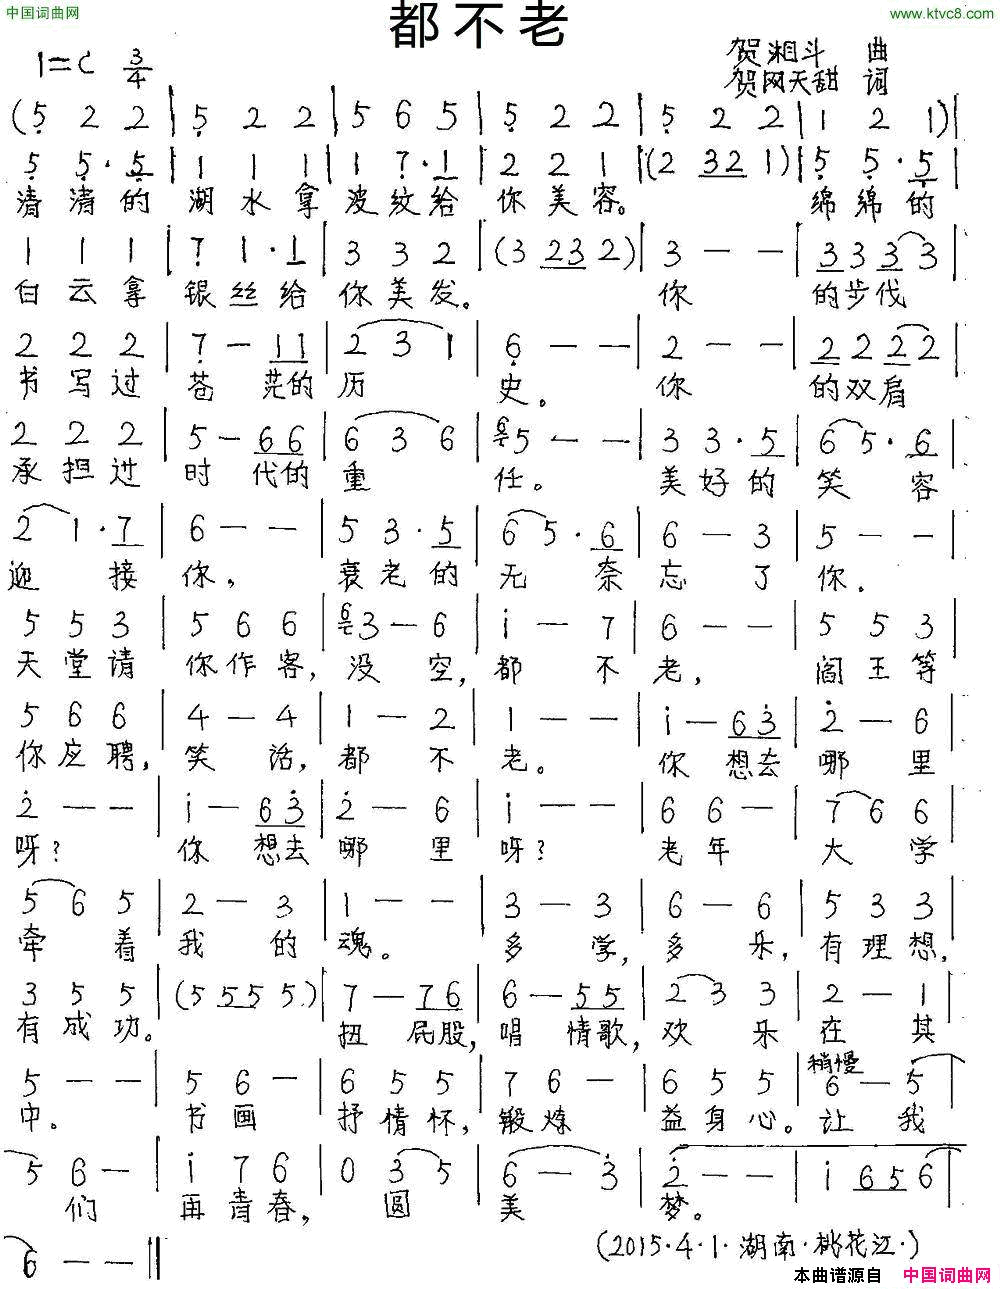 中国词曲网
www.ktvc8.com
都不老
1=C 3/4
贺湘斗 曲
贺网天甜 词
(5 2 2 | 5 2 2 | 5 6 5 | 5 2 2 | 5 2 2 | 1 2 1)|
5 5·5 | 1 1 1 | 1 7·1 | 2 2 1 |(2 32 1)| 5 5·5
清清的 湖水拿 波纹给 你美容。 绵绵的
1 1 1 | 7 1·1 | 3 3 2 |(3 232 2)| 3 — — | 3 3 3 3
白云拿 银丝给 你美发。 你 的步伐
2 2 2 | 7 — 11 | 2 3 1 | 6 — — | 2 — — | 2 2 2 2
书写过 苍茫的 历 史。 你 的双肩
2 2 2 | 5 — 66 | 6 3 6 | 5 — — | 3 3·5 | 6 5·6
承担过 时代的 重 任。 美好的 笑容
2 1·7 | 6 — — | 5 3·5 | 6 5·6 | 6 — 3 | 5 — —
迎接 你, 衰老的 无奈 忘了 你.
5 5 3 | 5 6 6 | 3 — 6 | i — 7 | 6 — — | 5 5 3
天堂请 你作客, 没空, 都不 老, 阎王等
5 6 6 | 4 — 4 | 1 — 2 | 1 — — | i — 63 | 2 — 6
你应聘, 笑话, 都不 老。 你想去 哪里
2 — — | i — 63 | 2 — 6 | i — — | 6 6 — | 7 6 6
呀? 你想去 哪里 呀? 老年 大学
5 6 5 | 2 — 3 | 1 — — | 3 — 3 | 6 — 6 | 5 3 3
牵着 我的 魂。 多学, 多乐, 有理想,
3 5 5 |(5 555 5.)| 7 — 76 | 6 — 55 | 2 3 3 | 2 — 1
有成功。 扭屁股, 唱情歌, 欢乐 在其
稍慢
5 — — | 5 6 — | 6 5 5 | 7 6 — | 6 5 5 | 6 — 5
中。 书画 抒情怀, 锻炼 益身心。 让我
5 6 — | i 7 6 | 0 3 5 | 6 — 3 | 2 — — | i 656
们 再青春, 圆 美 梦。
6 — — ‖
(2015·4·1·湖南·桃花江·)
本曲谱源自 中国词曲网